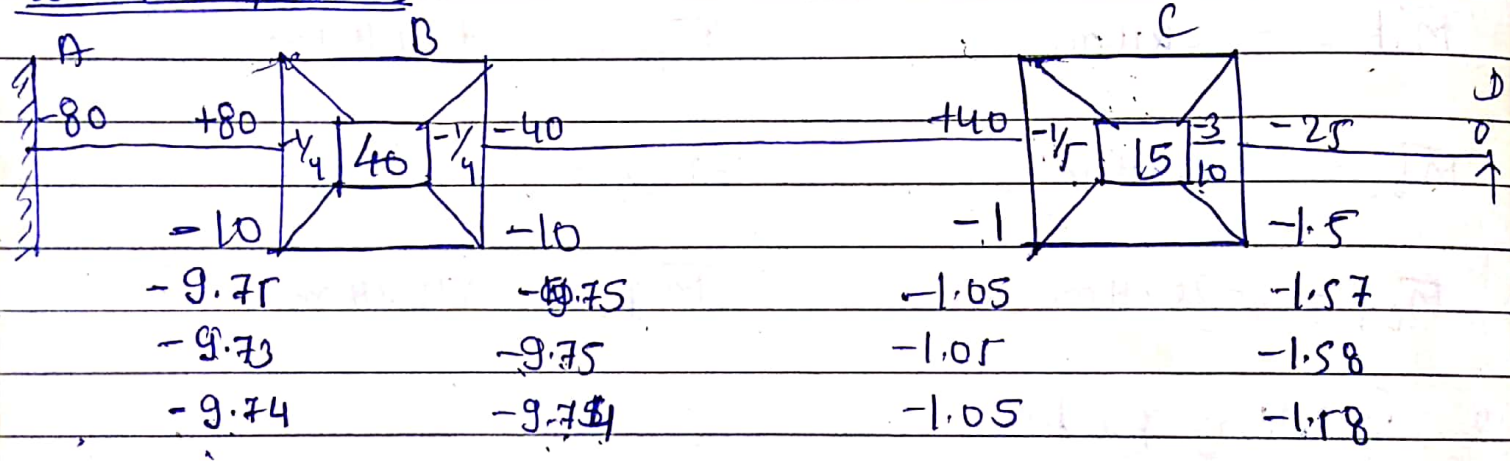 A B C D
-80 +80 -1/4 40 -1/4 -40 +40 -1/5 15 -3/10 -25 0
-10 -10 -1 -1.5
-9.75 .75 -1.05 -1.57
-9.73 -9.75 -1.05 -1.58
-9.74 -9.74 -1.05 -1.58